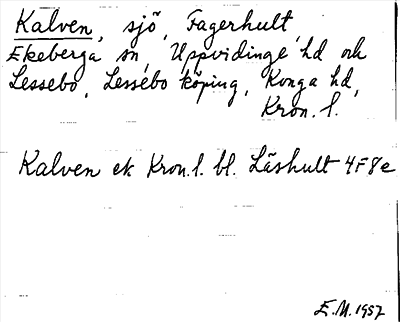 Kalven, sjö, Fagerhult,
Ekeberga sn, Uppvidinge hd och
Lessebo, Lessebo köping, Konga hd,
Kron. l.
Kalven ek Kron. l. bl. Låshult 4F8e
E.M. 1957